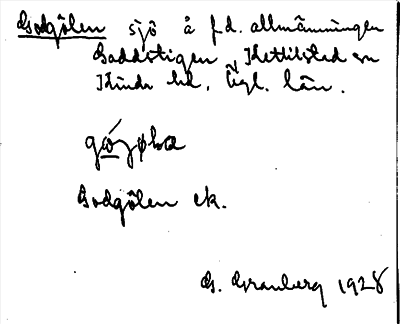 Godgölen sjö å f.d. allmänningen
Gaddstigen, Kettilstad sn
Kinda hd, Ögl. län.
Godgölen ek.
G. Granberg 1928